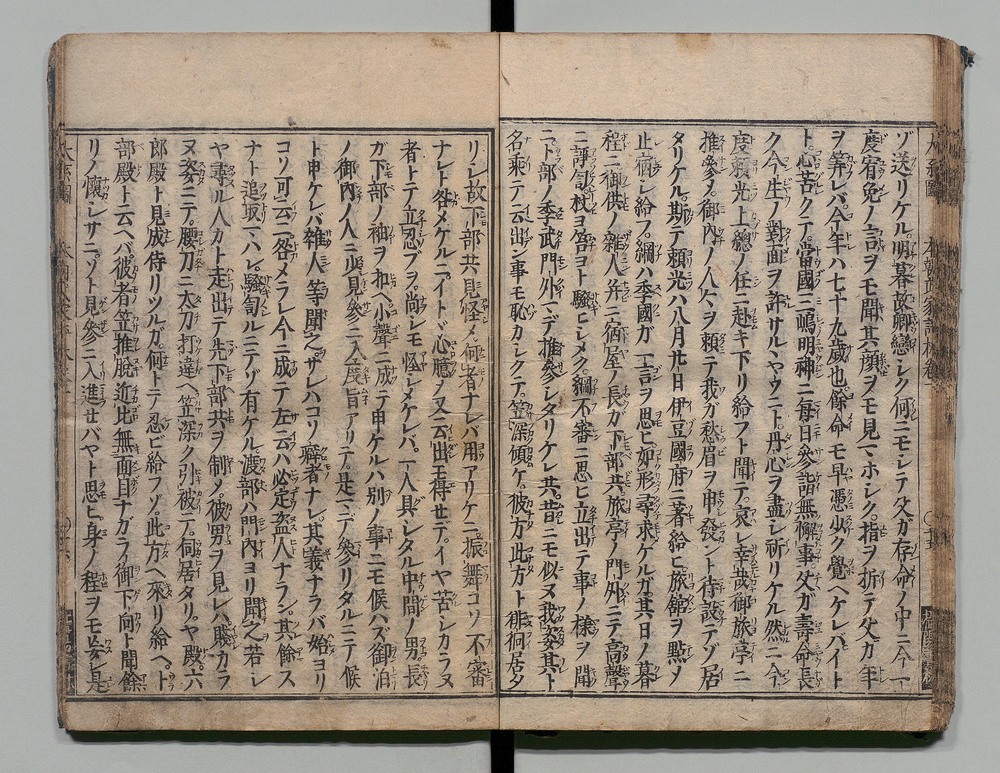 ゾ送リケル。明暮故郷戀シク何ニモシテ父ガ存命ノ中ニ今一
度宥免ノ言ヲモ聞其顔ヲモ見マホシク指ヲ折テ父カ年
ヲ筭レバ今年ハ七十九歳也餘命モ早憑少ク覺ヘケレバイト
ト心苦クテ。當國三嶋明神ニ毎日參詣無懈事父ガ壽命長
ク今生ノ對面ヲ許サルヽヤウニト。丹心ヲ盡シ祈リケル然ニ今
度頼光上總ノ任ニ赴キ下リ給フト聞テ。哀レ幸哉御旅亭ニ
推參メ。御內ノ人々ヲ頼テ我ガ愁眉ヲ申發ント待設テゾ居
タリケル。斯テ頼光ハ八月廿日伊豆國府ニ著給ヒ旅舘ヲ點メ
止宿シ給フ。綱ハ季國ガ一言ヲ思ヒ如形尋求ケルガ。其日ノ暮
程ニ御供ノ雜人并ニ宿屋ノ長ガ下部共旅亭ノ門外ニテ高聲
ニ諍訇杖ヲ當ヨト騒ヒシメク。綱不審ニ思ヒ立出テ事ノ樣ヲ聞
ニ卜部ノ季武門外マデ推參シタリケレ共。昔ニモ似ヌ我姿其ト
名乘テ云出ン事モ恥カシクテ。笠深傾ケ。彼方此方ト徘徊居タ
リシ故下部共見怪メ。何者ナレバ用アリケニ振舞コソ不審
ナレト咎メケルニ。イトド心臆ノ又云出モ得セデ。イヤ苦シカラヌ
者トテ立忍ブヲ。尚シモ怪シメケレバ。一人具シタル中間ノ男長
ガ下部ノ袖ヲ扣ヘ小聲ニ成テ申ケルハ別ノ事ニモ候ハズ御泊
ノ御內ノ人ニ少見參ニ入度旨アリテ。是マデ參リタルニテ候
ト申ケレバ雜人等聞之。サレハコソ癖者ナレ。其義ナラバ始ヨリ
コソ可云ニ咎メラレ今ニ成テ左云ハ必定盗人ナラン。其餘ス
ナト追取マハシ。騒訇ルニテゾ有ケル渡部ハ門內ヨリ聞之若シ
ヤ尋ル人カト走出テ先下部共ヲ制メ。彼男ヲ見レハ賤カラ
ヌ姿ニテ。腰刀ニ太刀打違ヘ笠深ク引被テ。伺居タリ。ヤ殿。六
郎殿ト見成侍リツルガ。何トテ忍ビ給フゾ。此方ヘ來リ給ヘ。ト
部殿ト云ヘバ彼者笠推脱近比無面目ナガラ御下向ト聞餘
リノ懷シサニ。ソト見參ニ入進セバヤト思ヒ身ノ程ヲモ忘レ是